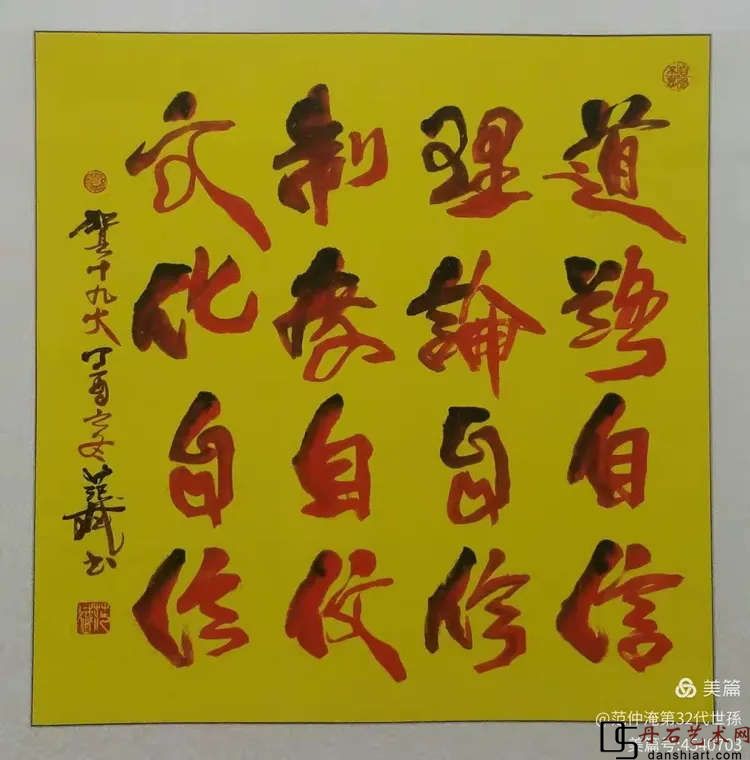 道路自信
理論自信
制度自信
文化自信
賀十九大 丁酉之冬 范
美篇
@范仲淹第32代世孫
美篇号:4340703
丹石艺术网
danshiart.com